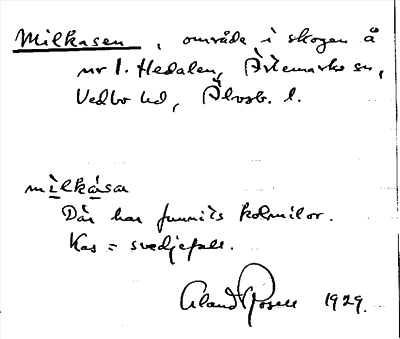 Milkasen, område i skogen å
nr 1. Hedalen, Ärtemarks sn,
Vedbo hd, Älvsb. l.
mìlkása
Där har funnits kolmilor.
Kas = svedjefall.
Rosell 1929.